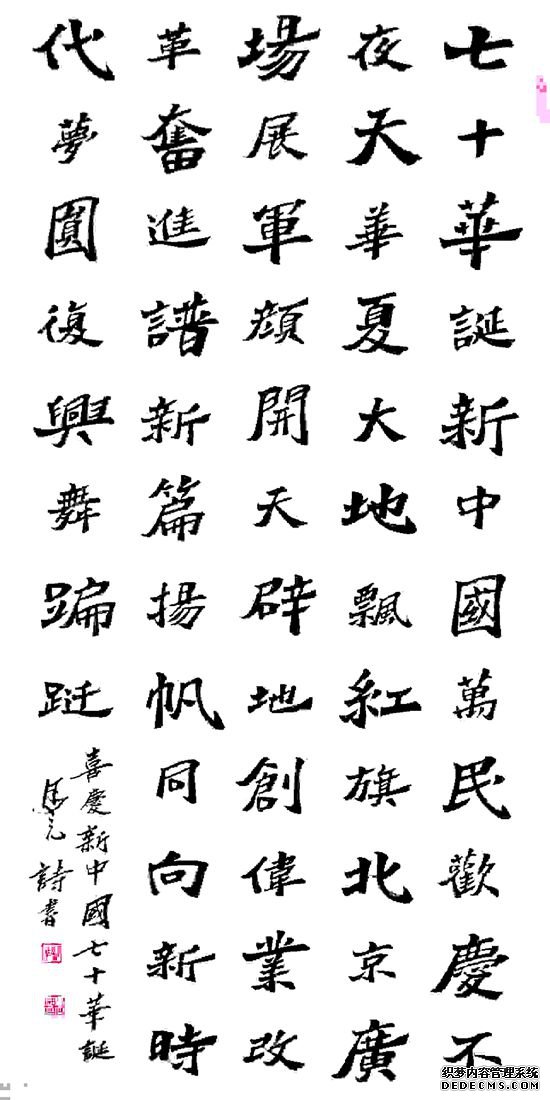 七十華誕新中國萬民歡慶不
夜天華夏大地飄紅旗北京廣
場展軍顏開天辟地創偉業改
革奮進譜新篇揚帆同向新時
代夢圓復興舞蹁跹
喜慶新中國七十華誕
詩書
织梦内容管理系统
DEDECMS.COM